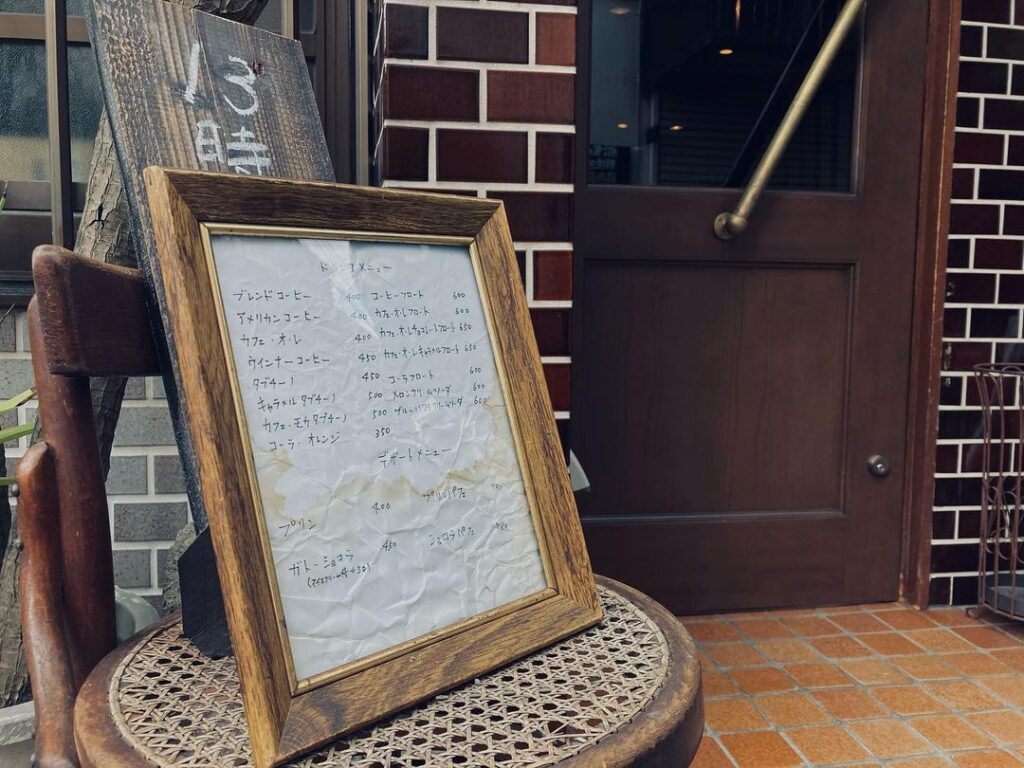 13
時
ドリンクメニュー
ブレンドコーヒー 400 コーヒーフロート 600
アメリカンコーヒー 400 カフェ・オ・レフロート 600
カフェ・オ・レ 400 カフェ・オ・レチョコレートフロート 650
ウインナーコーヒー 450 カフェ・オ・レキャラメルフロート 650
カプチーノ 450 コーラフロート 600
キャラメルカプチーノ 500 メロンクリームソーダ 600
カフェ・モカカプチーノ 500 ブルーハワイクリームソーダ 600
コーラ・オレンジ 350
デザートメニュー
プリン 400 プリンパフェ
ガトーショコラ 450 ショコラパフェ